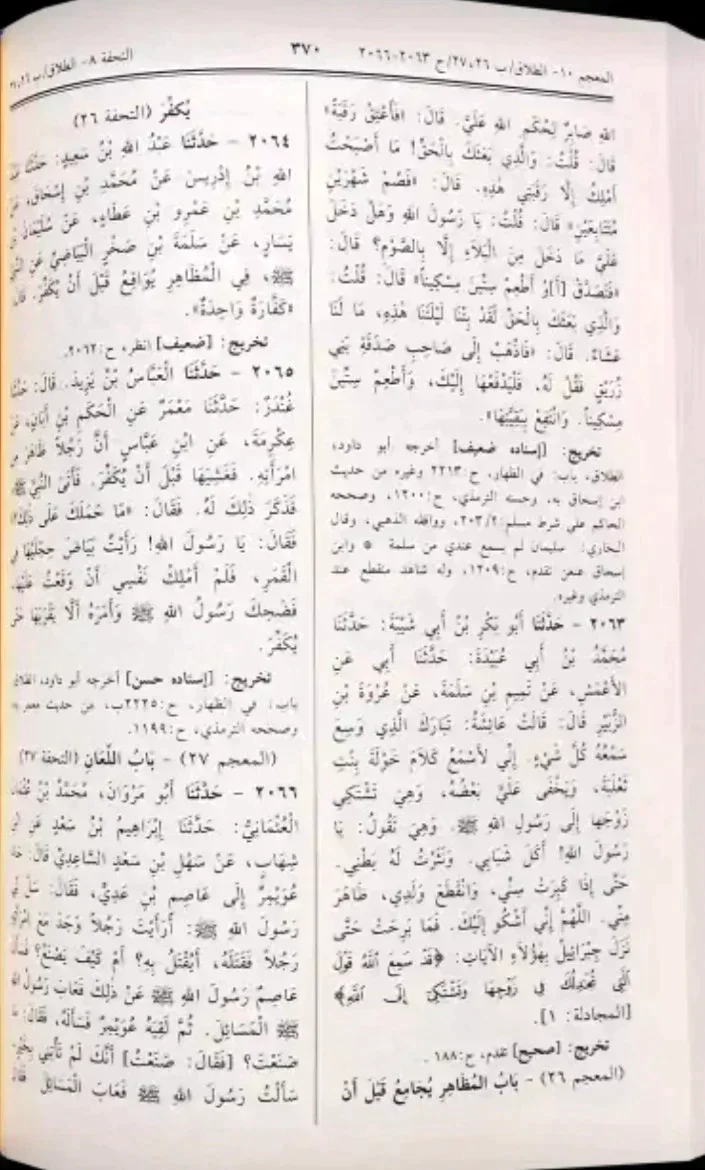 المعجم ١٠- الطلاق/ ب ٢٧،٢٦/ ح ٢٠٦٣-٢٠٦٦
٣٧٠
التحفة ٨- الطلاق/ ب
اللهِ صَابِرٌ لِحُكْمِ اللهِ عَلَيَّ. قَالَ: «فَأَعْتِقْ رَقَبَةً»
قَالَ: قُلْتُ: وَالَّذِي بَعَثَكَ بِالْحَقِّ! مَا أَصْبَحْتُ
أَمْلِكُ إِلَّا رَقَبَتِي هٰذِهِ. قَالَ: «فَصُمْ شَهْرَيْنِ
مُتَتَابِعَيْنِ» قَالَ: قُلْتُ: يَا رَسُولَ اللهِ وَهَلْ دَخَلَ
عَلَيَّ مَا دَخَلَ مِنَ الْبَلَاءِ إِلَّا بِالصَّوْمِ؟ قَالَ:
«فَتَصَدَّقْ [أَ]وْ أَطْعِمْ سِتِّينَ مِسْكِيناً» قَالَ: قُلْتُ:
وَالَّذِي بَعَثَكَ بِالْحَقِّ لَقَدْ بِتْنَا لَيْلَتَنَا هٰذِهِ، مَا لَنَا
عَشَاءٌ. قَالَ: «فَاذْهَبْ إِلَى صَاحِبِ صَدَقَةِ بَنِي
زُرَيْقٍ فَقُلْ لَهُ، فَلْيَدْفَعْهَا إِلَيْكَ، وَأَطْعِمْ سِتِّينَ
مِسْكِيناً. وَانْتَفِعْ بِبَقِيَّتِهَا».
تخريج: [إسناده ضعيف] أخرجه أبو داود،
الطلاق، باب: في الظهار، ح:٢٢١٣ وغيره من حديث
ابن إسحاق به، وحسنه الترمذي، ح:١٢٠٠، وصححه
الحاكم على شرط مسلم:٢٠٣/٢، ووافقه الذهبي، وقال
البخاري: سليمان لم يسمع عندي من سلمة * وابن
إسحاق عنعن تقدم، ح:١٢٠٩، وله شاهد منقطع عند
الترمذي وغيره.
٢٠٦٣ - حَدَّثَنَا أَبُو بَكْرِ بْنُ أَبِي شَيْبَةَ: حَدَّثَنَا
مُحَمَّدُ بْنُ أَبِي عُبَيْدَةَ: حَدَّثَنَا أَبِي عَنِ
الأَعْمَشِ، عَنْ تَمِيمِ بْنِ سَلَمَةَ، عَنْ عُرْوَةَ بْنِ
الزُّبَيْرِ قَالَ: قَالَتْ عَائِشَةُ: تَبَارَكَ الَّذِي وَسِعَ
سَمْعُهُ كُلَّ شَيْءٍ. إِنِّي لَأَسْمَعُ كَلَامَ خَوْلَةَ بِنْتِ
ثَعْلَبَةَ، وَيَخْفَى عَلَيَّ بَعْضُهُ، وَهِيَ تَشْتَكِي
زَوْجَهَا إِلَى رَسُولِ اللهِ ﷺ. وَهِيَ تَقُولُ: يَا
رَسُولَ اللهِ! أَكَلَ شَبَابِي. وَنَثَرْتُ لَهُ بَطْنِي.
حَتَّى إِذَا كَبِرَتْ سِنِّي، وَانْقَطَعَ وَلَدِي، ظَاهَرَ
مِنِّي. اللَّهُمَّ إِنِّي أَشْكُو إِلَيْكَ. فَمَا بَرِحَتْ حَتَّى
نَزَلَ جِبْرَائِيلُ بِهٰؤُلَاءِ الآيَاتِ: ﴿قَدْ سَمِعَ اللَّهُ قَوْلَ
الَّتِي تُجَادِلُكَ فِي زَوْجِهَا وَتَشْتَكِي إِلَى اللَّهِ﴾
[المجادلة: ١].
تخريج: [صحيح] تقدم، ح:١٨٨.
(المعجم ٢٦) - بَابُ المُظَاهِرِ يُجَامِعُ قَبْلَ أَنْ
يُكَفِّرَ (التحفة ٢٦)
٢٠٦٤ - حَدَّثَنَا عَبْدُ اللهِ بْنُ سَعِيدٍ: حَدَّثَنَا عَبْدُ
اللهِ بْنُ إِدْرِيسَ عَنْ مُحَمَّدِ بْنِ إِسْحَاقَ، عَنْ
مُحَمَّدِ بْنِ عَمْرِو بْنِ عَطَاءٍ، عَنْ سُلَيْمَانَ بْنِ
يَسَارٍ، عَنْ سَلَمَةَ بْنِ صَخْرٍ الْبَيَاضِيِّ عَنِ النَّبِيِّ
ﷺ، فِي الْمُظَاهِرِ يُوَاقِعُ قَبْلَ أَنْ يُكَفِّرَ. قَالَ:
«كَفَّارَةٌ وَاحِدَةٌ».
تخريج: [ضعيف] انظر، ح:٢٠٦٢.
٢٠٦٥ - حَدَّثَنَا الْعَبَّاسُ بْنُ يَزِيدَ. قَالَ: حَدَّثَنَا
غُنْدَرٌ: حَدَّثَنَا مَعْمَرٌ عَنِ الْحَكَمِ بْنِ أَبَانٍ، عَنْ
عِكْرِمَةَ، عَنِ ابْنِ عَبَّاسٍ أَنَّ رَجُلاً ظَاهَرَ مِنِ
امْرَأَتِهِ. فَغَشِيَهَا قَبْلَ أَنْ يُكَفِّرَ. فَأَتَى النَّبِيَّ ﷺ
فَذَكَرَ ذٰلِكَ لَهُ. فَقَالَ: «مَا حَمَلَكَ عَلَى ذٰلِكَ؟»
فَقَالَ: يَا رَسُولَ اللهِ! رَأَيْتُ بَيَاضَ حِجْلَيْهَا فِي
الْقَمَرِ، فَلَمْ أَمْلِكْ نَفْسِي أَنْ وَقَعْتُ عَلَيْهَا.
فَضَحِكَ رَسُولُ اللهِ ﷺ وَأَمَرَهُ أَلَّا يَقْرَبَهَا حَتَّى
يُكَفِّرَ.
تخريج: [إسناده حسن] أخرجه أبو داود، الطلاق
باب: في الظهار، ح:٢٢٢٥ب، من حديث معمر به
وصححه الترمذي، ح:١١٩٩.
(المعجم ٢٧) - بَابُ اللِّعَانِ (التحفة ٢٧)
٢٠٦٦ - حَدَّثَنَا أَبُو مَرْوَانَ، مُحَمَّدُ بْنُ عُثْمَانَ
الْعُثْمَانِيُّ: حَدَّثَنَا إِبْرَاهِيمُ بْنُ سَعْدٍ عَنِ ابْنِ
شِهَابٍ، عَنْ سَهْلِ بْنِ سَعْدٍ السَّاعِدِيِّ قَالَ: جَاءَ
عُوَيْمِرٌ إِلَى عَاصِمِ بْنِ عَدِيٍّ، فَقَالَ: سَلْ لِي
رَسُولَ اللهِ ﷺ: أَرَأَيْتَ رَجُلاً وَجَدَ مَعَ امْرَأَتِهِ
رَجُلاً فَقَتَلَهُ، أَيُقْتَلُ بِهِ؟ أَمْ كَيْفَ يَصْنَعُ؟ فَسَأَلَ
عَاصِمٌ رَسُولَ اللهِ ﷺ عَنْ ذٰلِكَ فَعَابَ رَسُولُ اللهِ
ﷺ الْمَسَائِلَ. ثُمَّ لَقِيَهُ عُوَيْمِرٌ فَسَأَلَهُ، فَقَالَ: مَا
صَنَعْتَ؟ [فَقَالَ: صَنَعْتُ] أَنَّكَ لَمْ تَأْتِنِي بِخَيْرٍ.
سَأَلْتُ رَسُولَ اللهِ ﷺ فَعَابَ الْمَسَائِلَ قَالَ